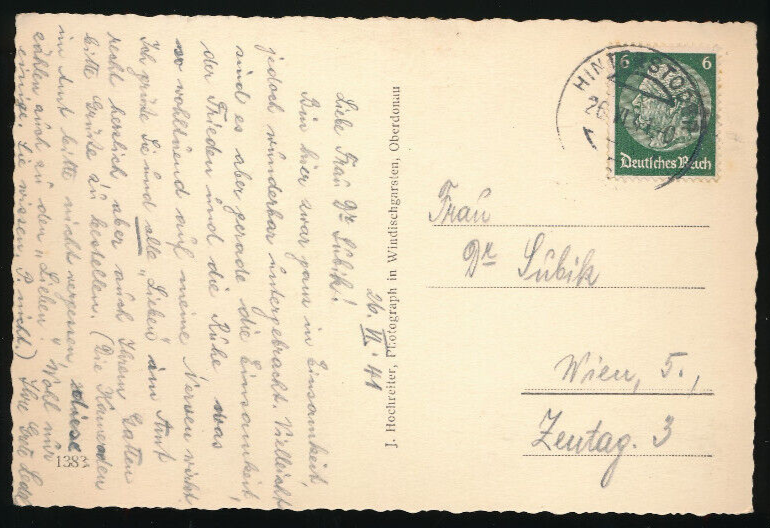 26. VI. 41
Liebe Frau Dr. Subik!
Bin hier zwar ganz in Einsamkeit,
jedoch wunderbar untergebracht. Vielleicht
sind es aber gerade die Einsamkeit,
der Frieden und die Ruhe was
so wohltuend auf meine Nerven wirkt.
Ich grüße Sie und alle "Lieben" im Amt
recht herzlich aber auch Ihrem Gatten
bitte Grüße zu bestellen. (Die
im Amt bitte nicht vergessen, diese
zählen auch zu den "Lieben". Wohl nur
einige. Sie wissen. nicht) Ihre Grete
1383
J. Hochreiter, Photograph in Windischgarsten, Oberdonau
6 6
Deutsches Reich
Frau
Dr Subik
Wien, 5.,
Zentag. 3